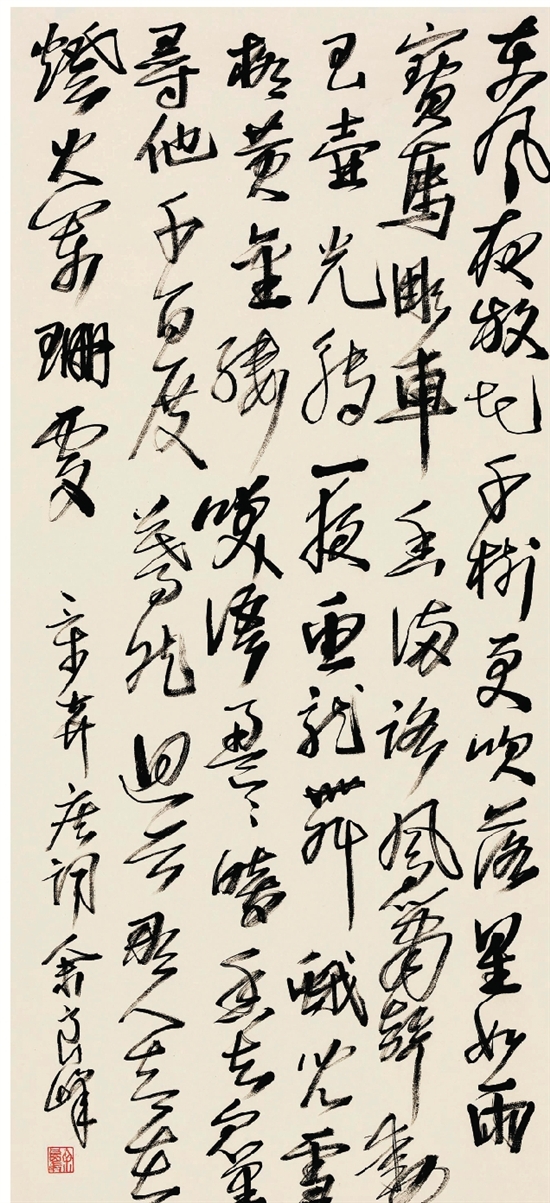 东风夜放花千树更吹落星如雨
寶馬雕車香满路凤箫聲動
玉壶光转一夜鱼龙舞蛾儿雪
柳黄金缕笑语盈盈暗香去众里
尋他千百度蓦然迴首那人却在
燈火阑珊处 辛弃疾词 俞良峰